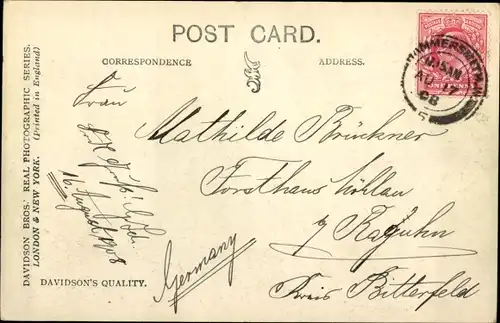 POST CARD.
CORRESPONDENCE
ADDRESS.
HAMMERSMITH
AU 7
08
Frau
Mathilde Brückner
Forsthaus Möhlau
Raguhn
Kreis Bitterfeld
Germany
16. August 1908
DAVIDSON BROS.' REAL PHOTOGRAPHIC SERIES.
LONDON & NEW YORK. (Printed in England)
DAVIDSON'S QUALITY.